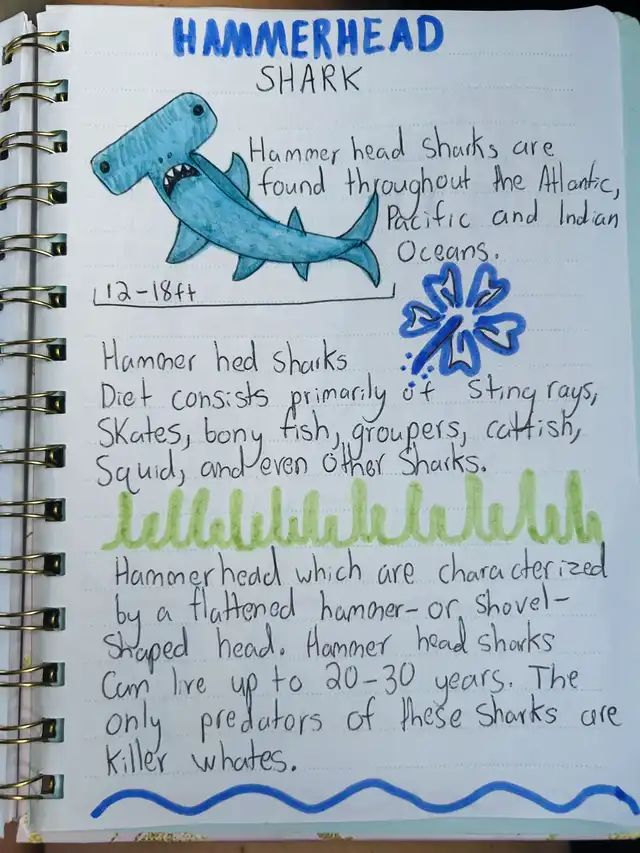 HAMMERHEAD
SHARK
Hammer head sharks are
found throughout the Atlantic,
Pacific and Indian
Oceans.
12-18ft
Hammer hed sharks
Diet consists primarily of Sting rays,
Skates, bony fish, groupers, catfish,
Squid, and even other sharks.
Hammerhead which are characterized
by a flattened hammer- or shovel-
shaped head. Hammer head sharks
Can live up to 20-30 years. The
only predators of these sharks are
killer whales.